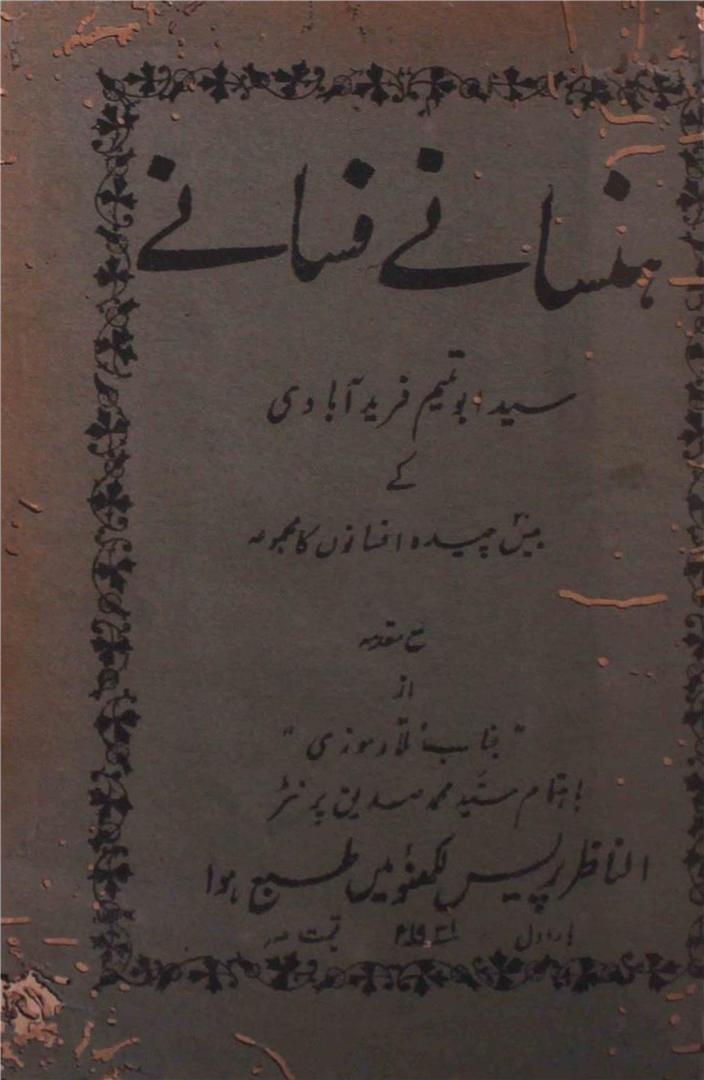 ہنسانے فسانے
سید ابو تمیم فرید آبادی
کے
بیس چیدہ افسانوں کا مجموعہ
مع مقدمہ
از
"جناب ملا رموزی"
باہتمام سید محمد صدیق پرنٹر
الناظر پریس لکھنؤ میں طبع ہوا
بار اول ۱۹۳۱ء قیمت